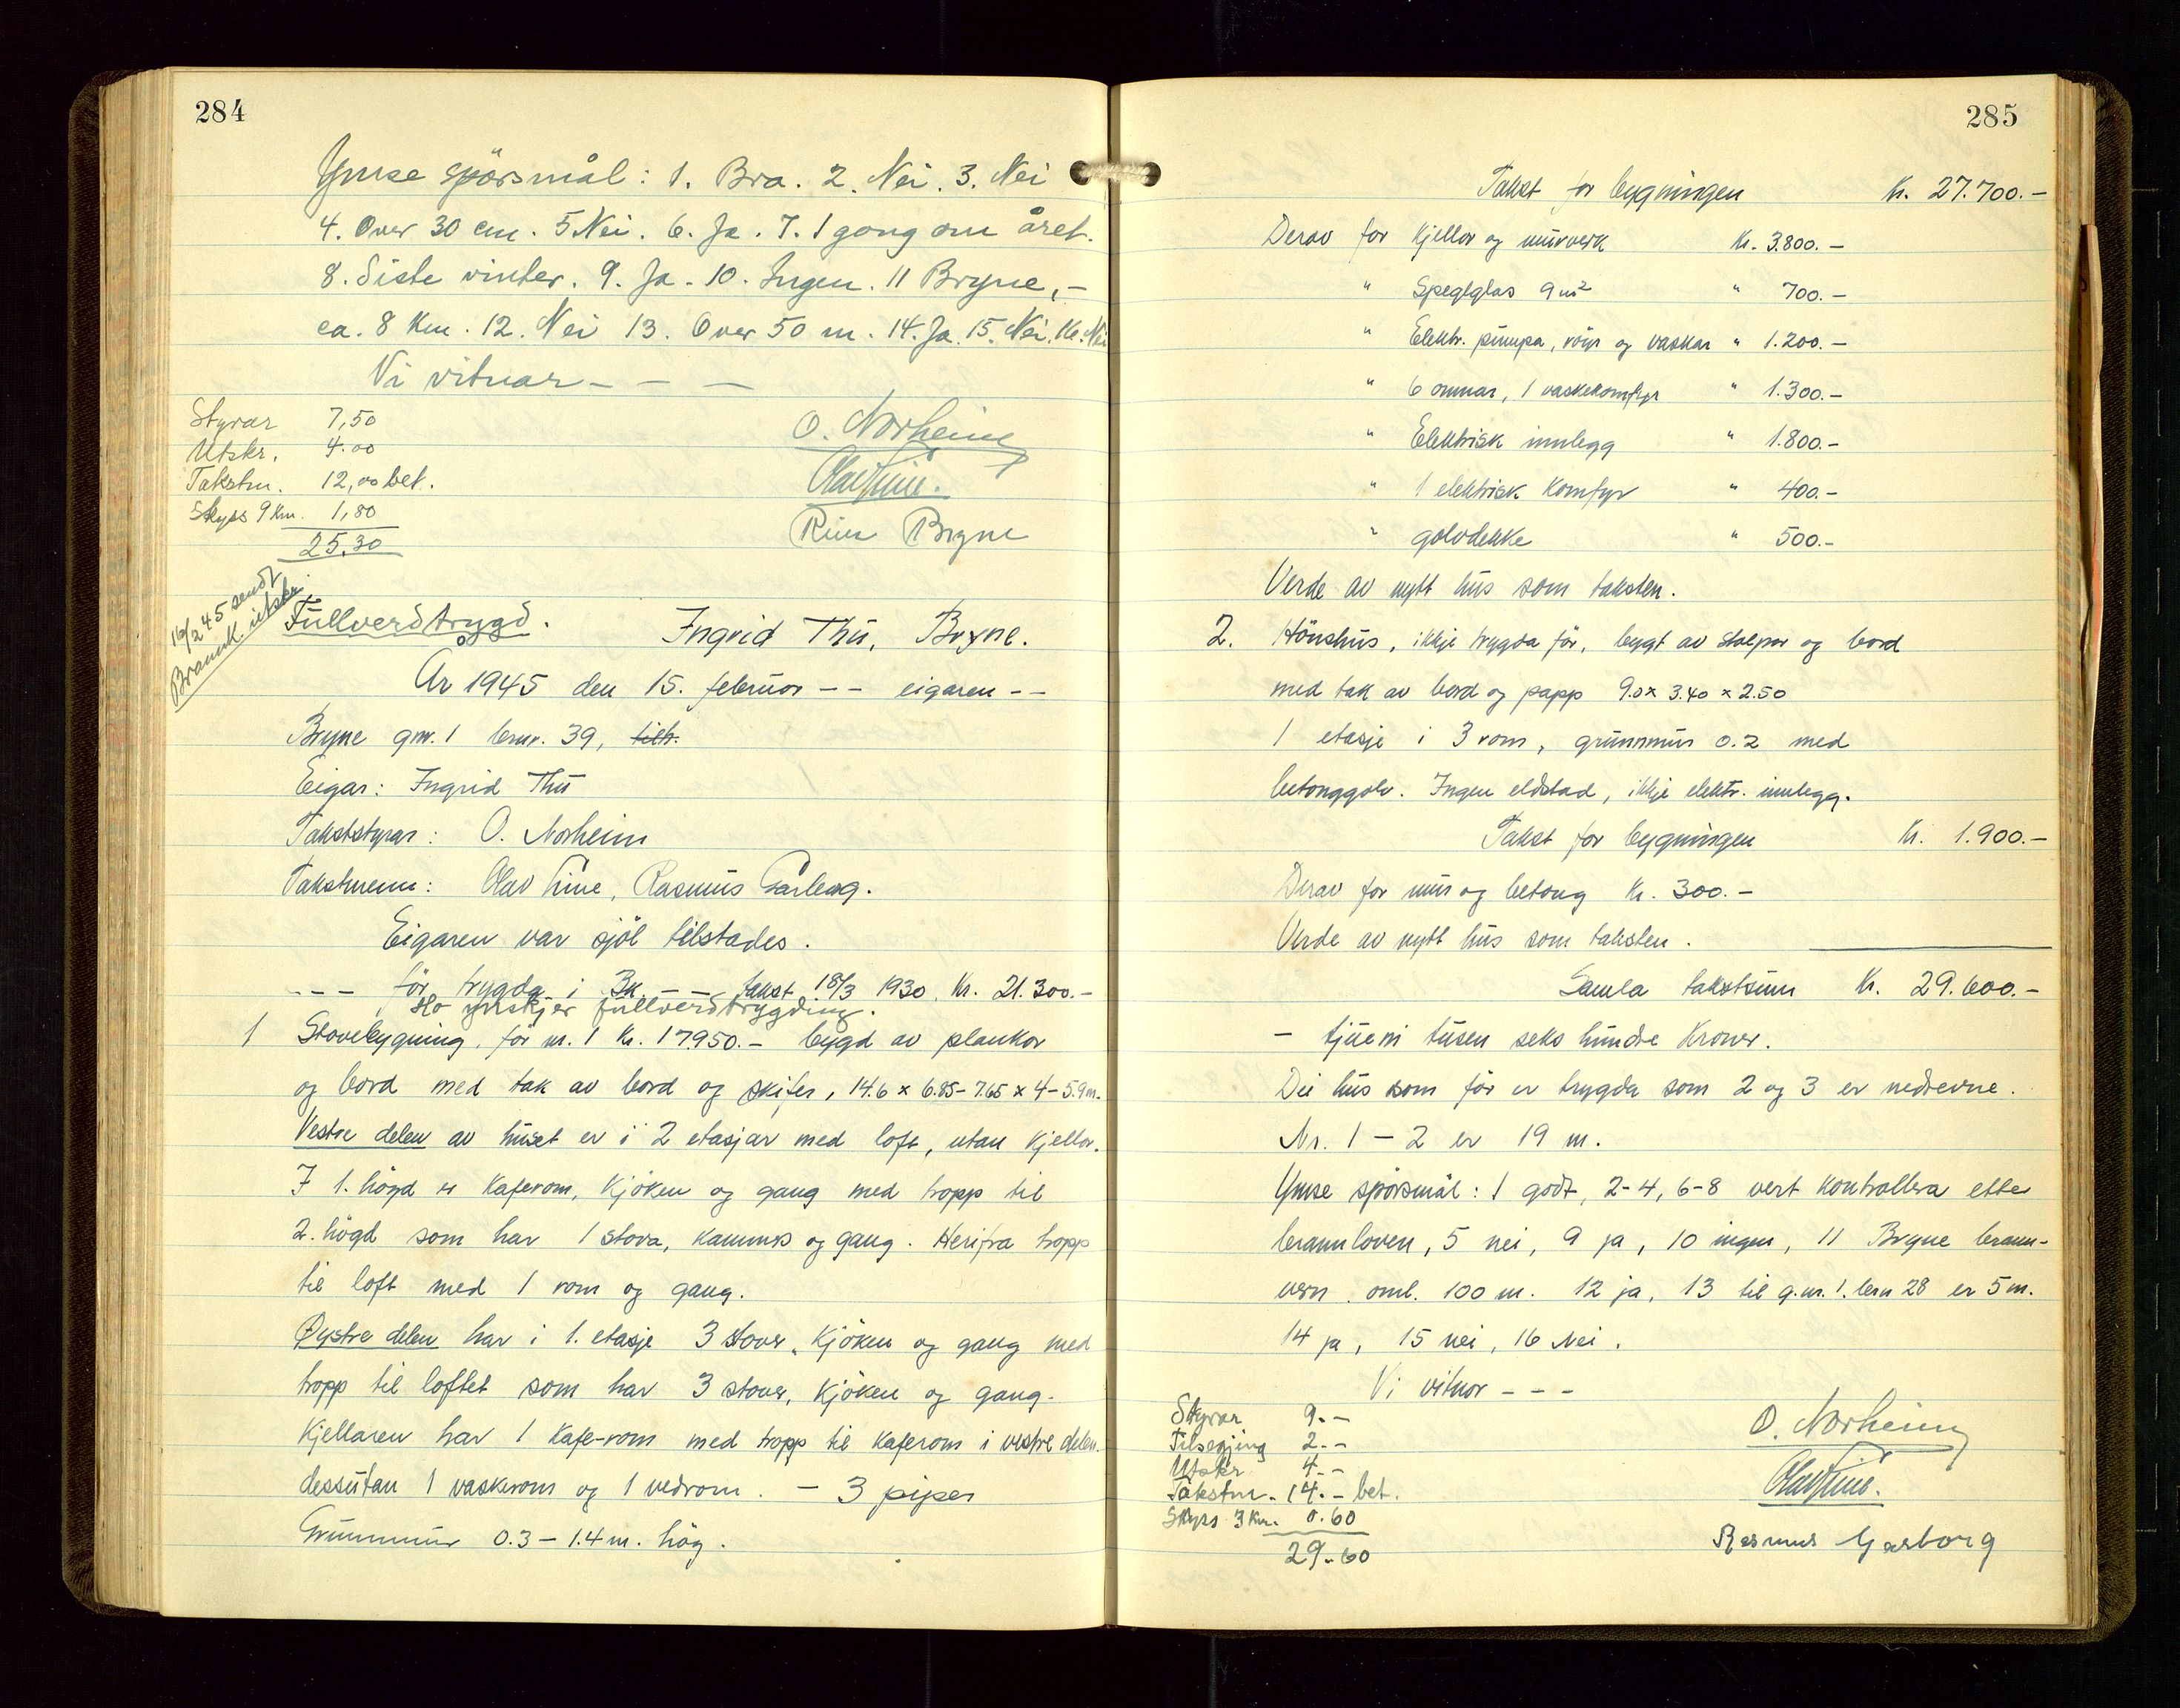 284
Ymse spörsmål: 1. Bra. 2. Nei. 3. Nei
4. Over 30 cm. 5 Nei. 6. Ja. 7. 1 gong om året.
8. Siste vinter. 9. Ja. 10. Ingen. 11 Bryne, -
ca. 8 km. 12. Nei 13. Over 50 m. 14. Ja. 15. Nei. 16. Nei
Vi vitnar - - -
Styrar 7,50
Utskr. 4.00
Takstm. 12,00 bet.
Skyss 9 km. 1,80
25,30
O. Norheim
Olav Time.
Bryne
16/2 45 sendt
Brannk. utskr.
Fullverdtrygd. Ingrid Thu, Bryne.
År 1945 den 15. februar - - eigaren - -
Bryne gnr. 1 bnr. 39,
Eigar: Ingrid Thu
Takststyrar: O. Norheim
Takstmenn: Olav Time, Rasmus Garborg.
Eigaren var sjöl tilstades.
- - - för trygda i Bk. - - takst 18/3 1930. Kr. 21.300.-
Ho ynskjer fullverdtrygding.
1 Stovebygning, för nr. 1 Kr. 17950.- bygd av plankor
og bord med tak av bord og skifer, 14.6 x 6.85-7.65 x 4-5.9 m.
Vestre delen av huset er i 2 etasjar med loft, utan kjellar.
I 1. högd er kaferom, kjöken og gang med tropp til
2. högd som har 1 stova, kammers og gang. Herifra tropp
til loft med 1 rom og gang.
Øystre delen har i 1. etasje 3 stover, kjöken og gang med
tropp til loftet som har 3 stover, kjöken og gang.
Kjellaren har 1 kafe-rom med tropp til kaferom i vestre delen
dessutan 1 vaskerom og 1 vedrom. - 3 piper
Grunnmur 0.3 - 1.4 m. høg.
285
Takst for bygningen Kr. 27.700.-
Derav for kjellar og murverk Kr. 3.800.-
" Speglglas 9 m² " 700.-
" Elektr. pumpa, röyr og vaskar " 1.200.-
" 6 omnar, 1 vaskekomfyr " 1.300.-
" Elektrisk innlegg " 1.800.-
" 1 elektrisk komfyr " 400.-
" golvdekke " 500.-
Verde av nytt hus som taksten.
2. Hönshus, ikkje trygda för, bygt av stolpar og bord
med tak av bord og papp 9.0 x 3.40 x 2.50
1 etasje i 3 rom, grunnmur 0.2 med
betonggolv. Ingen eldstad, ikkje elektr. innlegg.
Takst for bygningen Kr. 1.900.-
Derav for mur og betong Kr. 300.-
Verde av nytt hus som taksten.
Samla takstsum Kr. 29.600.-
- tjueni tusen seks hundre kroner.
Dei hus som för er trygda som 2 og 3 er nedrevne.
Nr. 1 - 2 er 19 m.
Ymse spörsmål: 1 godt, 2-4, 6-8 vert kontrollera etter
brannloven, 5 nei, 9 ja, 10 ingen, 11 Bryne brann-
vern. oml. 100 m. 12 ja, 13 til g.nr. 1. bnr 28 er 5 m.
14 ja, 15 nei, 16 Nei.
Vi vitnar - - -
Styrar 9.-
Tilsegjing 2.-
Utskr 4.-
Takstm. 14.- bet.
Skyss 3 km. 0.60
29.60
O. Norheim
Olav Time.
Rasmus Garborg